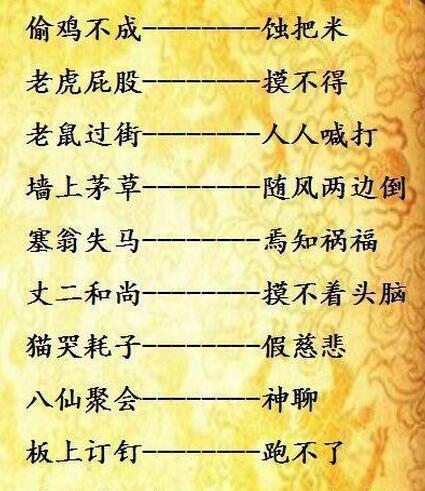 偷鸡不成--------蚀把米
老虎屁股--------摸不得
老鼠过街--------人人喊打
墙上茅草--------随风两边倒
塞翁失马--------焉知祸福
丈二和尚--------摸不着头脑
猫哭耗子--------假慈悲
八仙聚会--------神聊
板上订钉--------跑不了